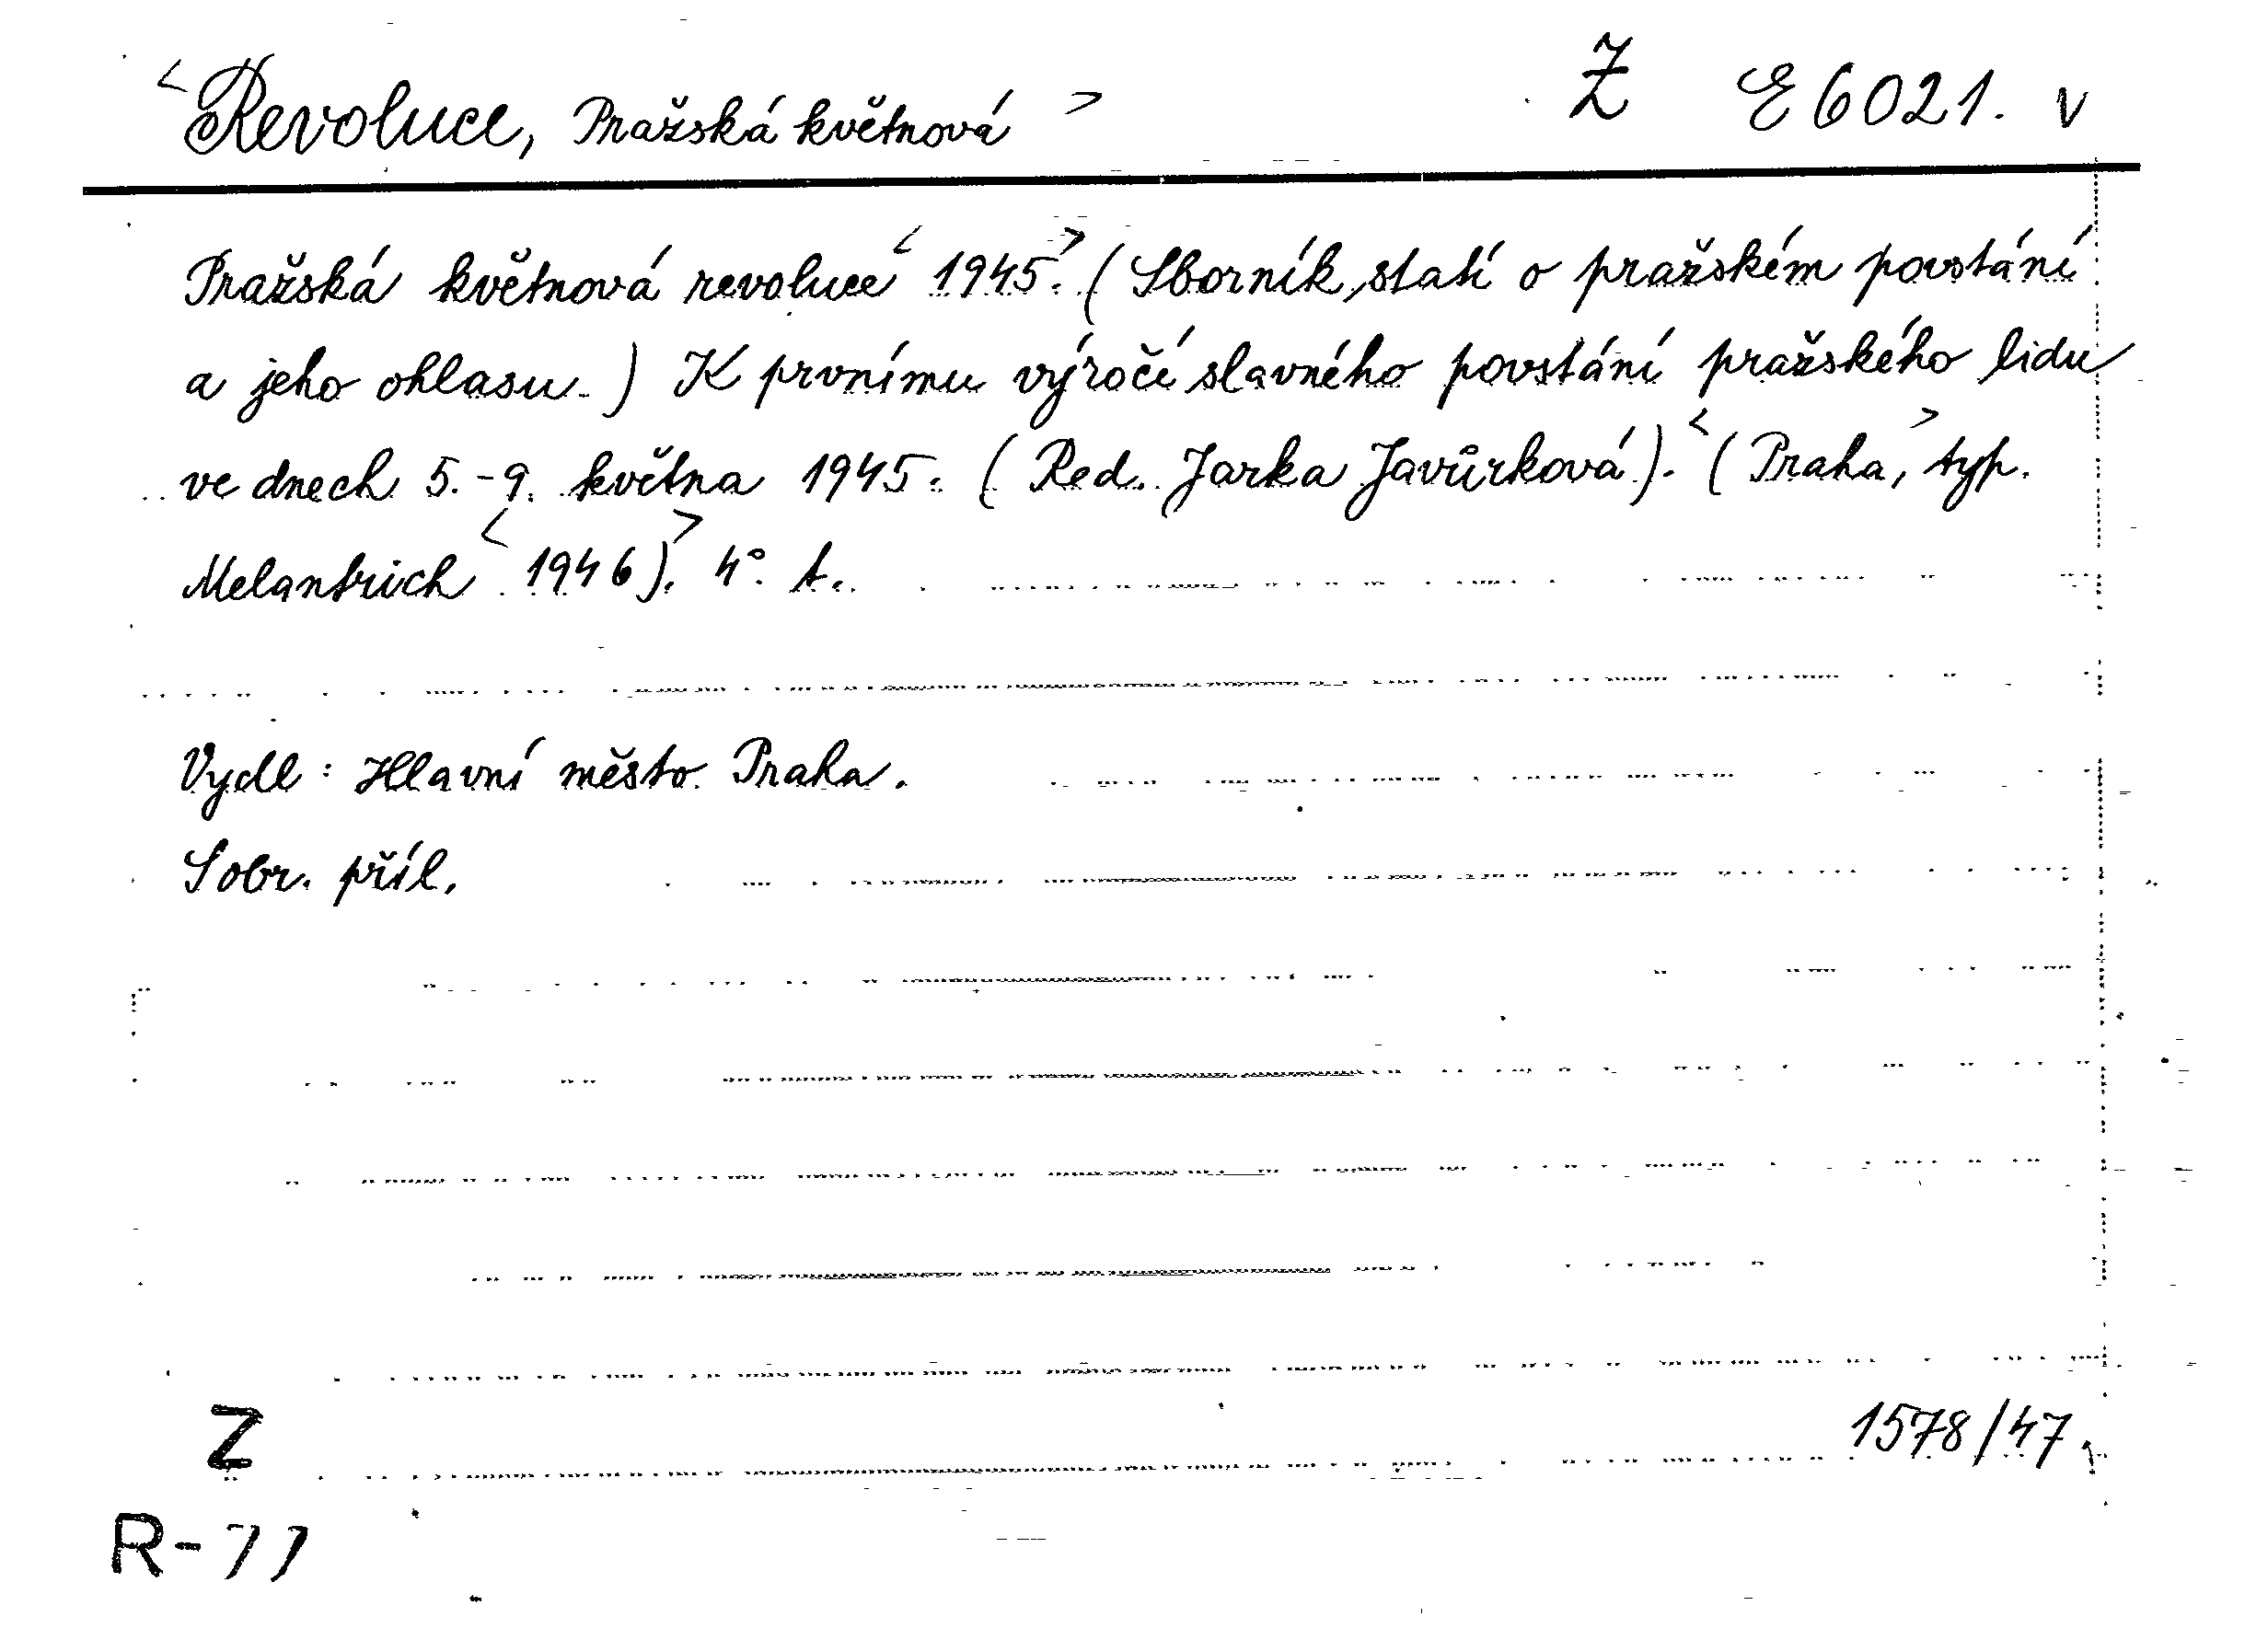 <Revoluce, Pražská květnová> Ž E 6021. v
Pražská květnová revoluce <1945>. (Sborník statí o pražském povstání
a jeho ohlasu.) K prvnímu výročí slavného povstání pražského lidu
ve dnech 5.-9. května 1945. (Red. Jarka Javůrková). <(Praha,> typ.
Melantrich <1946)>. 4°. t.
Vydl: Hlavní město Praha.
S obr. příl.
1578/47.
Z
R-77